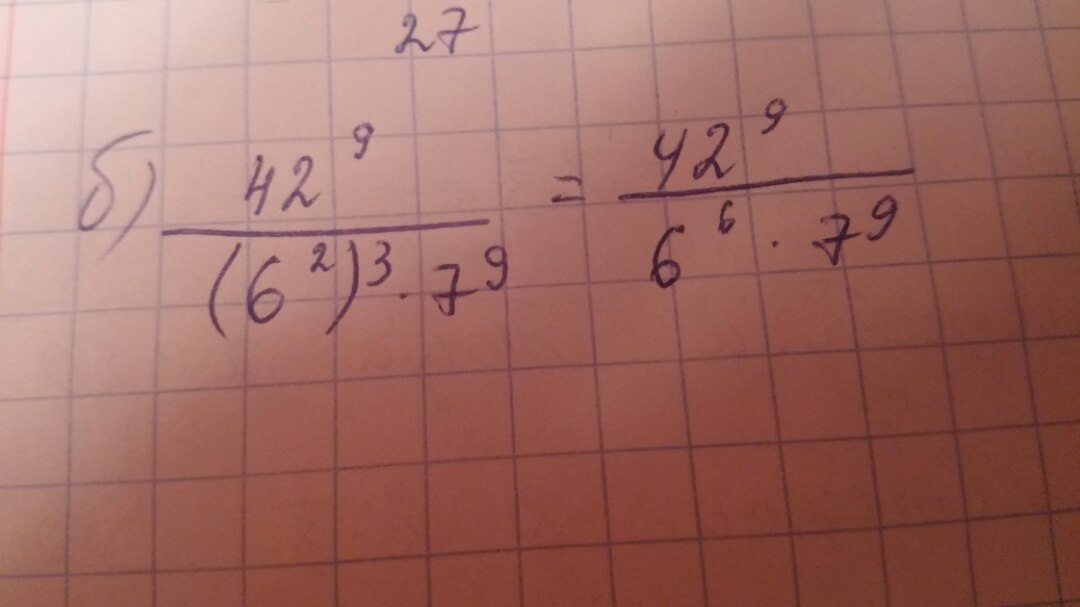 27
б) 42⁹ / (6²)³ · 7⁹ = 42⁹ / 6⁶ · 7⁹